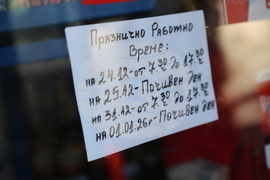 Празнично Работно
Време:
на 24.12-от 7.30 до 17.30
на 25.12-Почивен Ден
на 31.12-от 7.30 до 17.30
на 01.01.26г-Почивен Ден